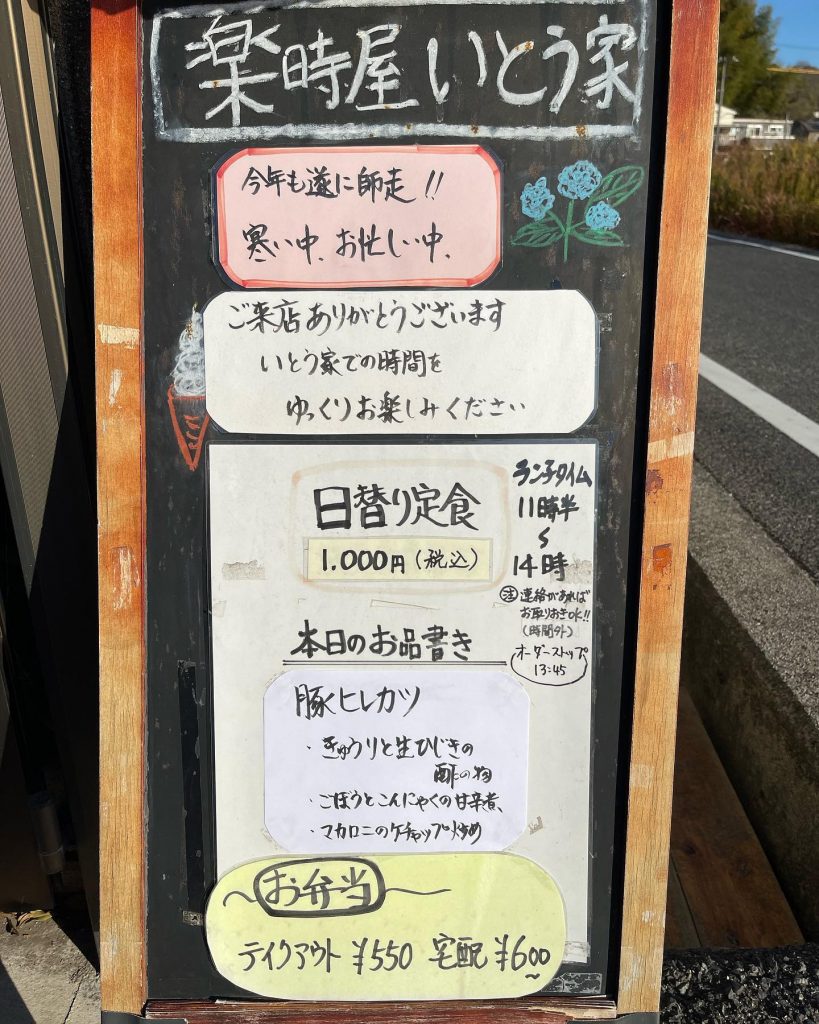 楽時屋 いとう家
今年も遂に師走!!
寒い中、お忙しい中、
ご来店ありがとうございます
いとう家での時間を
ゆっくりお楽しみください
日替り定食
1.000円(税込)
ランチタイム
11時半
〜
14時
㊟連絡があれば
お取りおきOK!!
(時間外)
オーダーストップ
13:45
本日のお品書き
豚ヒレカツ
・きゅうりと生ひじきの
酢の物
・ごぼうとこんにゃくの甘辛煮、
・マカロニのケチャップ炒め
〜お弁当〜
テイクアウト ¥550 宅配 ¥600〜